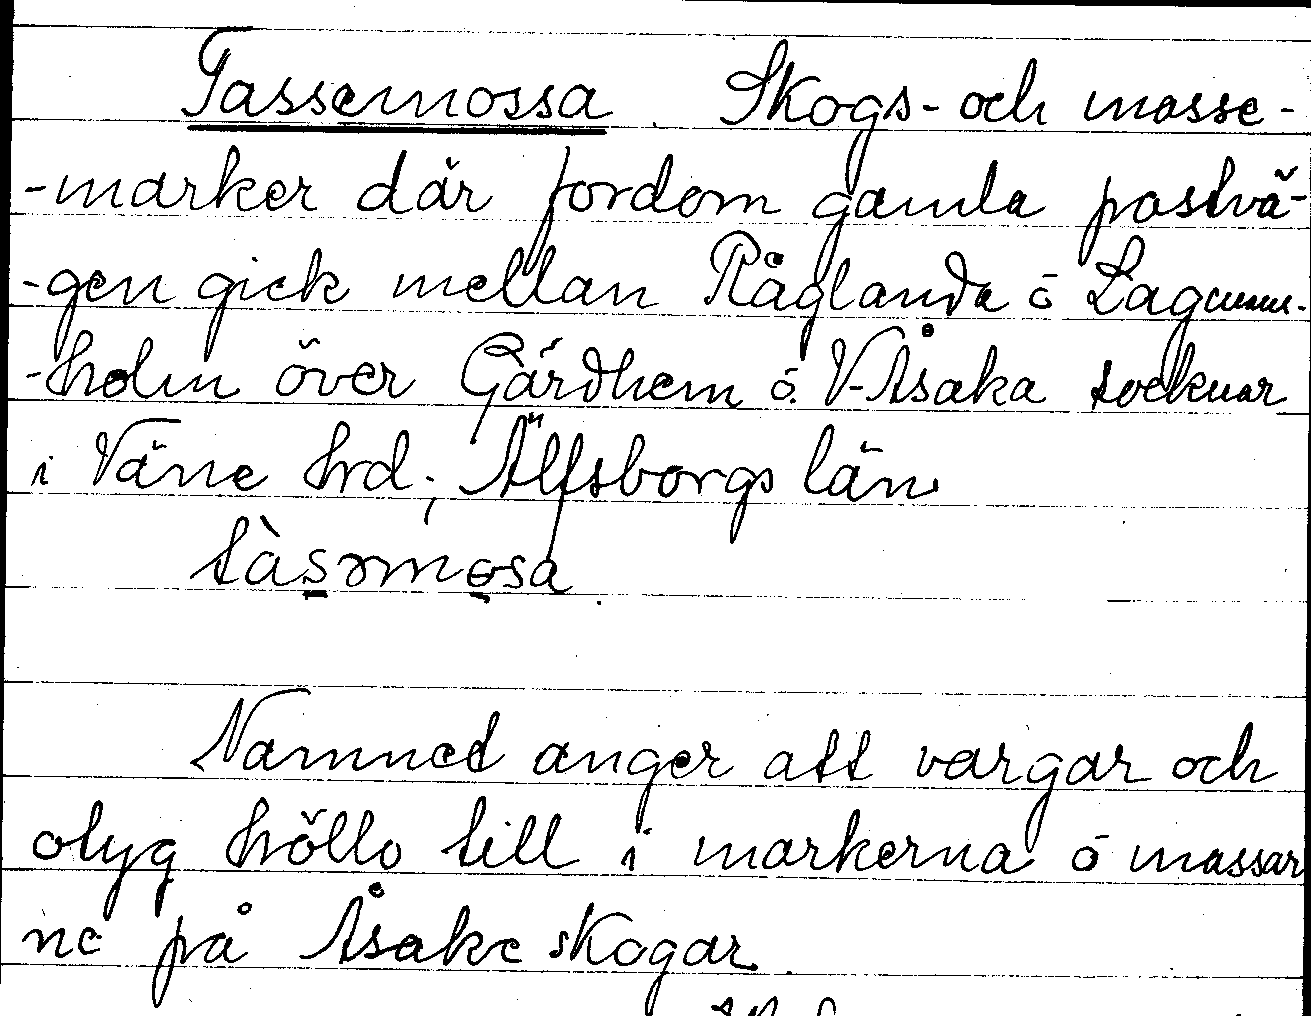 Tassemossa. Skogs- och mosse-
-marker där fordom gamla postvä-
-gen gick mellan Råglanda ó Lagmans-
-holm över Gärdhem ó. V-Åsaka socknar
i Väne hrd; Älfsborgs län
tàsəmosa.
Namnet anger att vargar och
otyg höllo till i markerna ó mossar
ne på Åsake skogar.